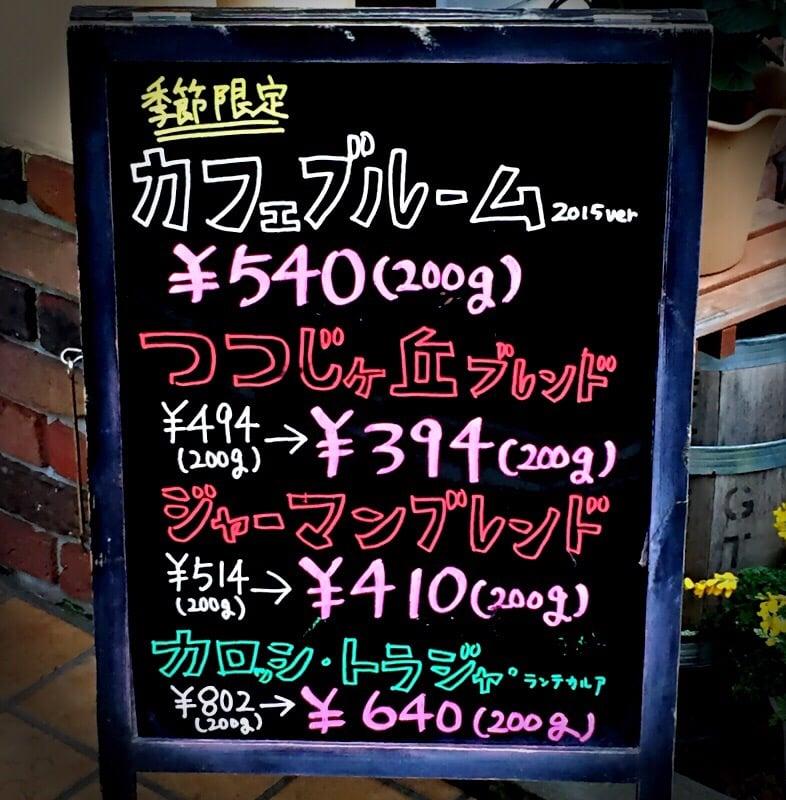 季節限定
カフェブルーム 2015ver
¥540(200g)
つつじヶ丘ブレンド
¥494(200g)→¥394(200g)
ジャーマンブレンド
¥514(200g)→¥410(200g)
カロッシ・トラジャ・ランテカルア
¥802(200g)→¥640(200g)